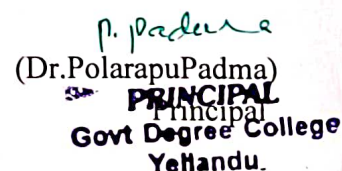 P. Padma
(Dr.PolarapuPadma)
PRINCIPAL
Principal
Govt Degree College
Yellandu.